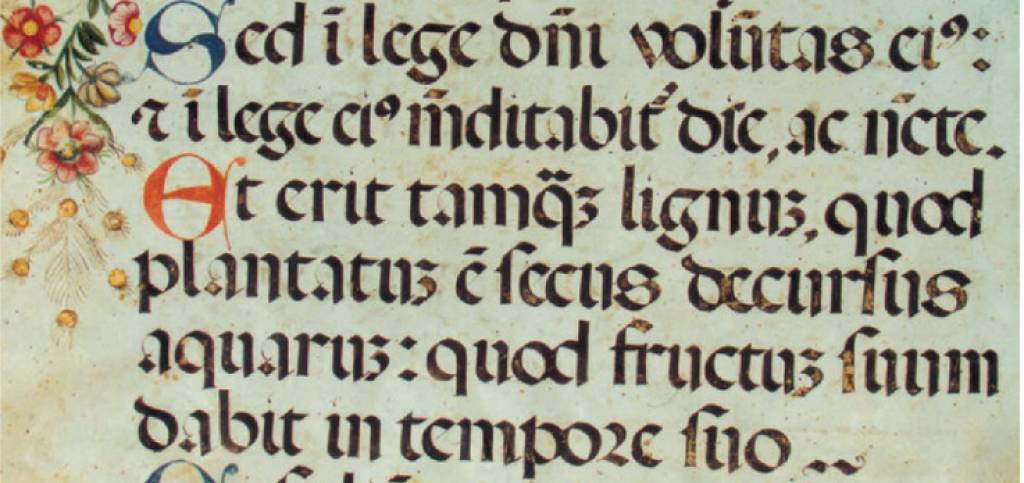 Sed ī lege dñi volūtas eiꝰ:
⁊ ī lege eiꝰ m̄ditabit᷑ die, ac ncte.
Et erit tamq̃ʒ lignuʒ, quod
plantatuʒ ē ſecus decurſus
aquaruʒ: quod fructuʒ ſuum
dabit in tempoꝛe ſuo